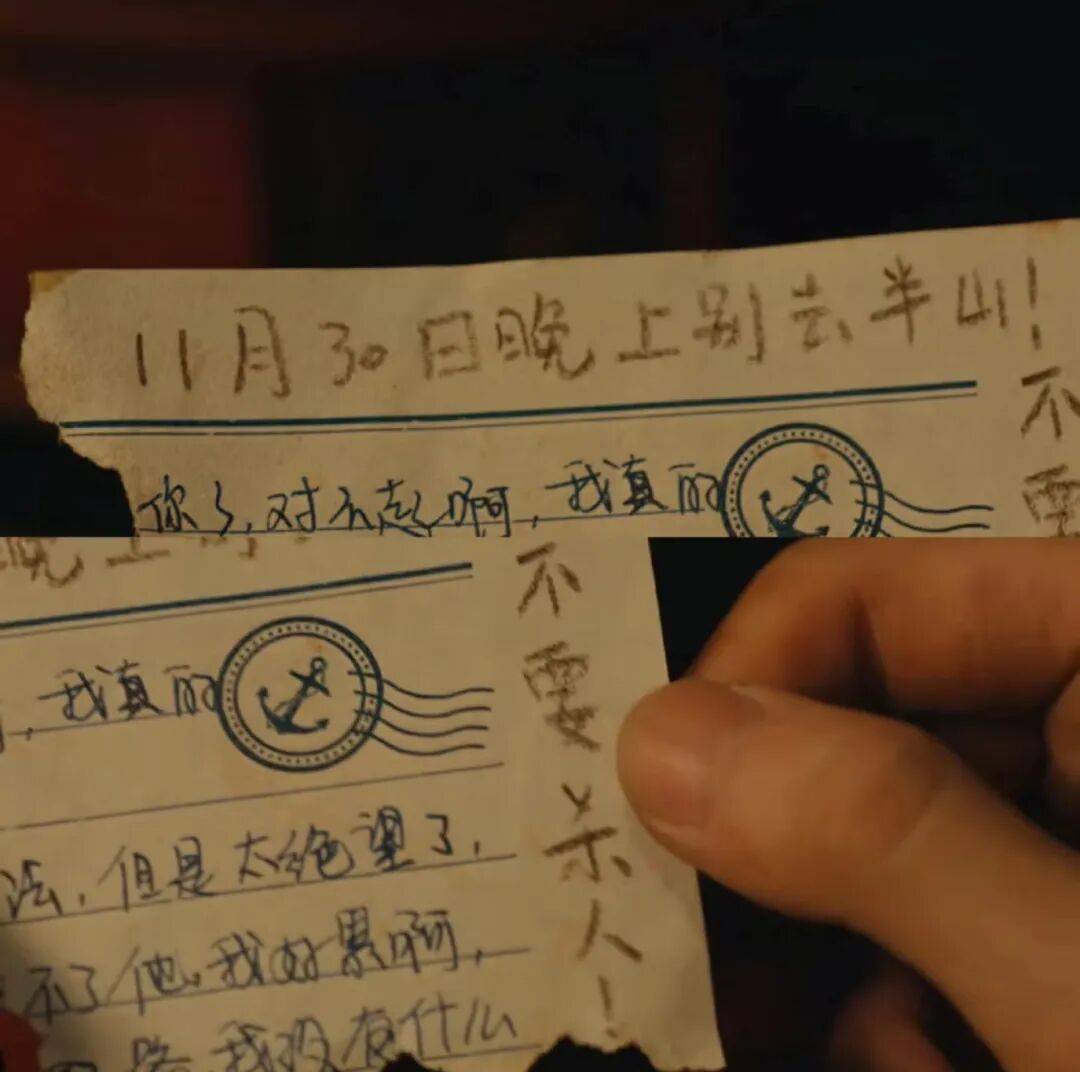 11月30日晚上别去半山!
不要
你了,对不起啊,我真的
晚上
不要杀人!
,我真的
法,但是太绝望了,
不了他,我好累啊,
我没有什么